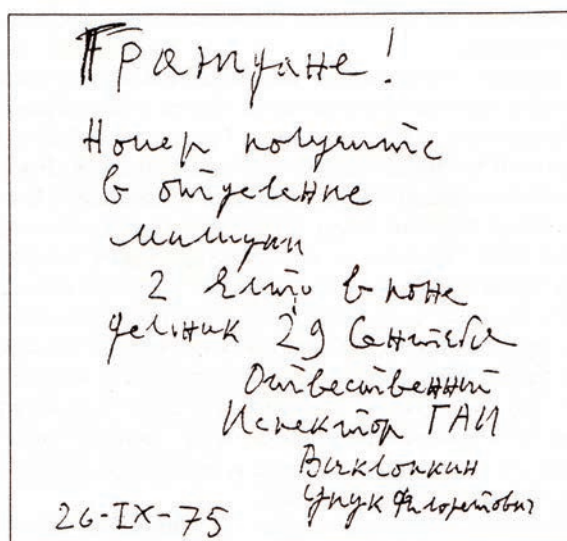 Граждане!
Номер получите
в отделение
милиции
2 в поне
дельник 29 Сентебя
Отвественный
Испектор ГАИ
Филоретович
26-IX-75